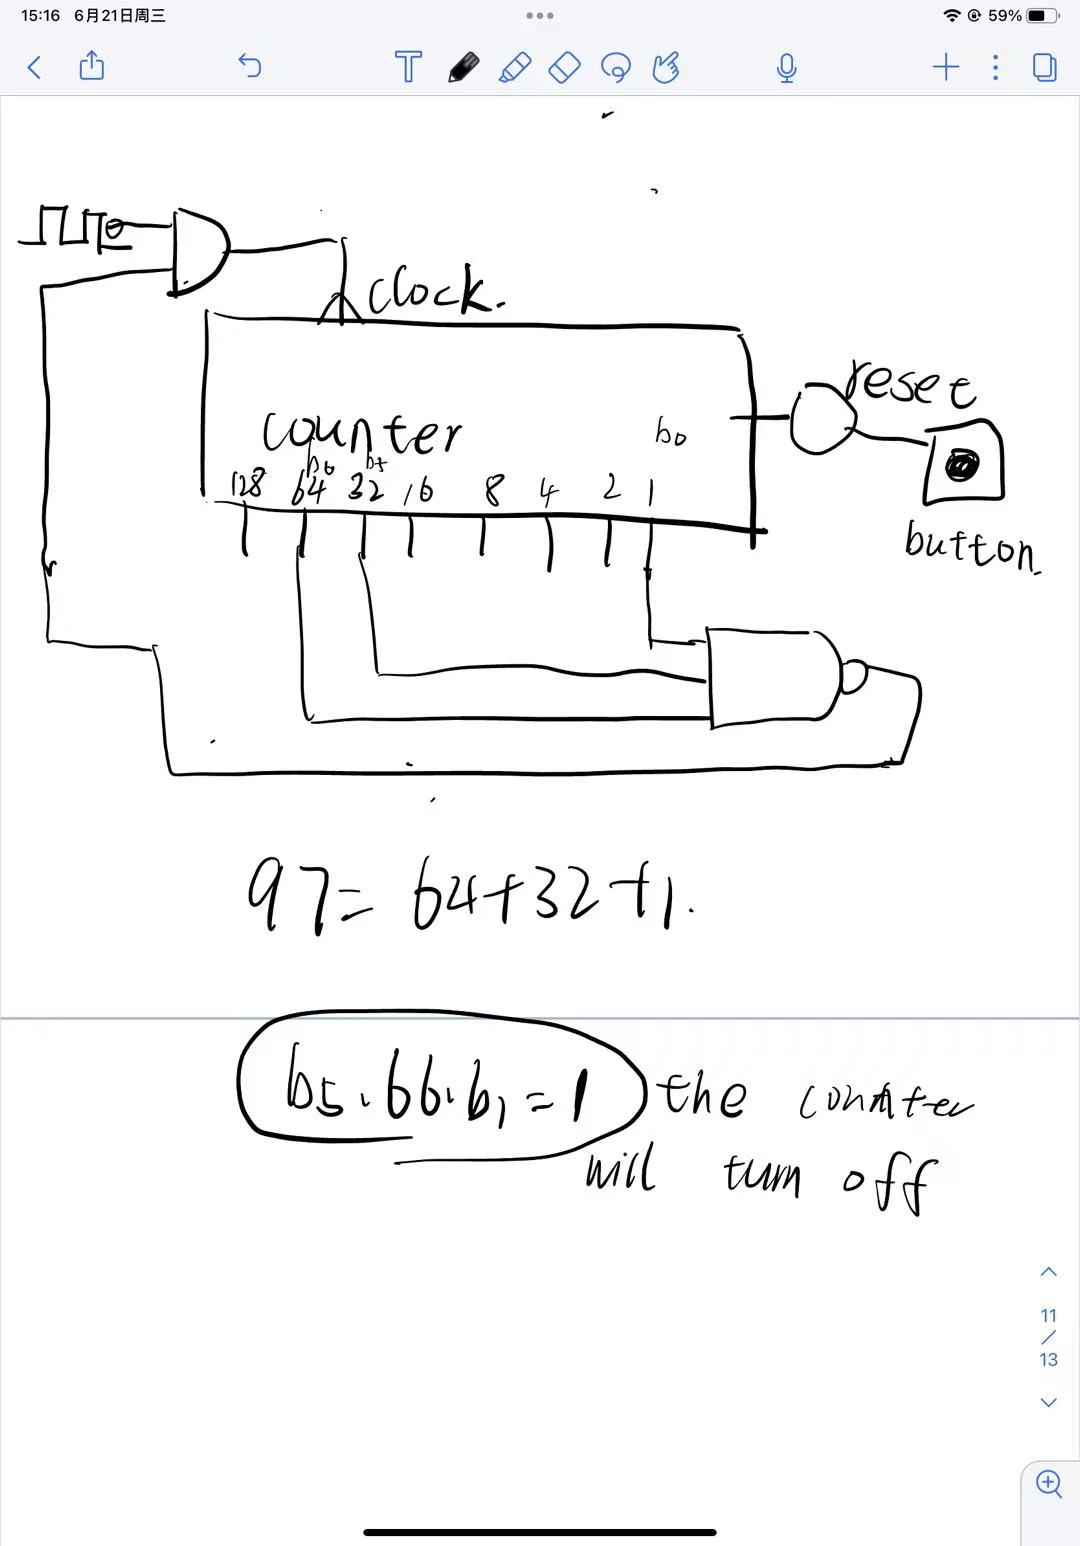 15:16 6月21日周三
59%
T
clock.
reset
counter
b0
b6 b5
128 64 32 16 8 4 2 1
button.
97= 64+32+1.
b5.b6.b1=1 the counter
will turn off
11
/
13